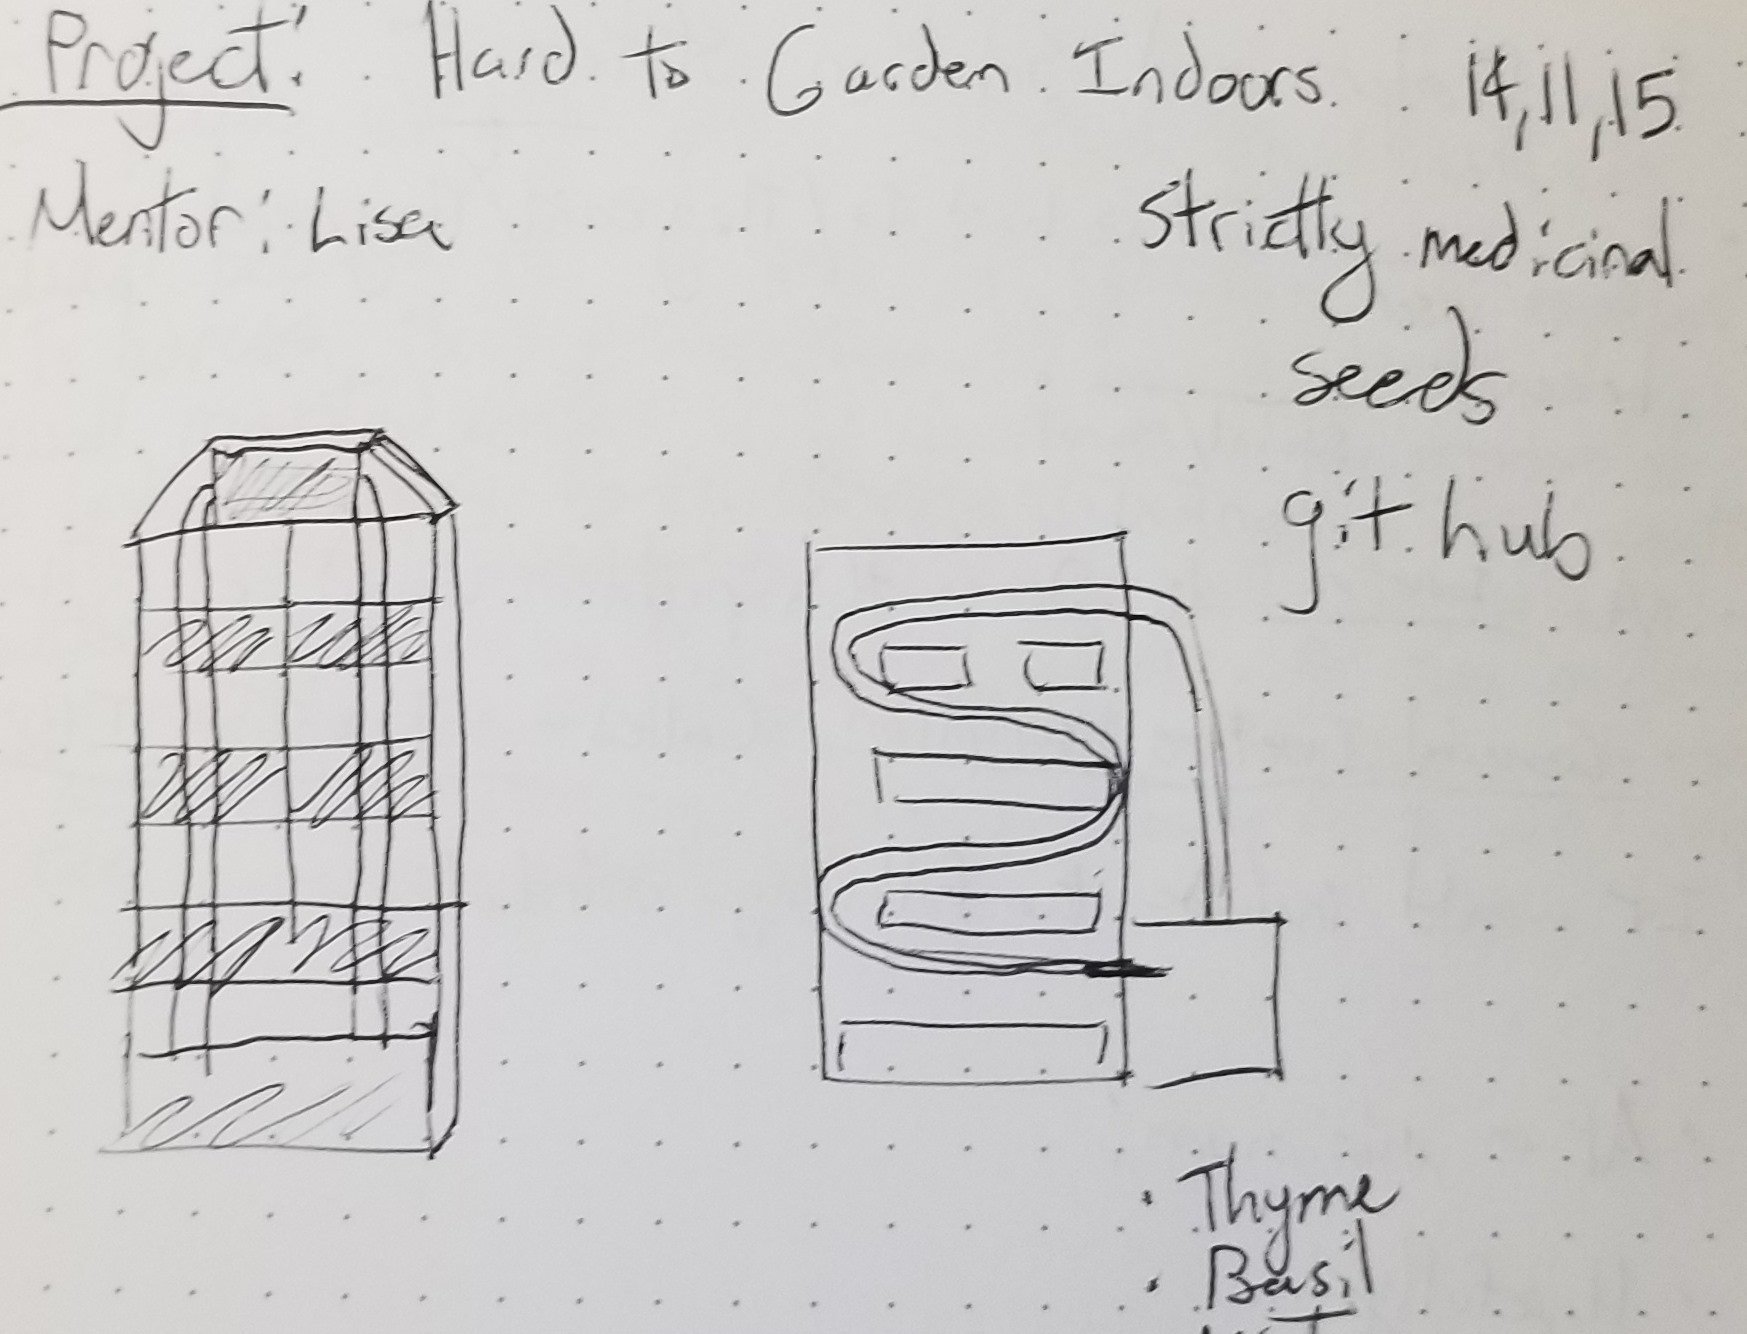 Project: Hard to Garden Indoors 14, 11, 15
Mentor: Lisa
Strictly medicinal
seeds
git hub
• Thyme
• Basil